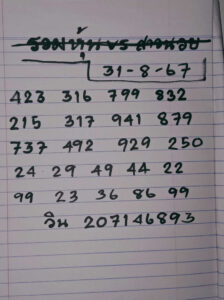 31-8-67
423 316 799 832
215 317 941 879
737 492 929 250
24 29 49 44 22
99 23 36 86 99
วิน 207146893